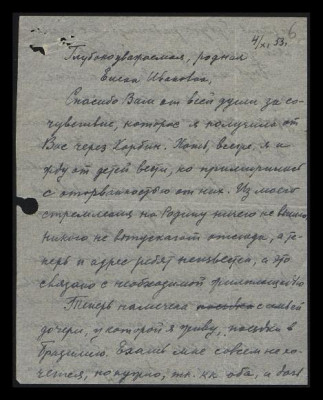 4/XI 53.
Глубокоуважаемая, родная
Елена Ивановна,
Спасибо Вам от всей души за со-
чувствие, которое я получила от
Вас через Харбин. Хоть, везде, я и
жду от детей вести, но примирилась
с оторванностью от них. Из моего
стремления на Родину ничего не вышло
никого не выпускают отсюда, а те-
перь и адрес ребят неизвестен, а это
связано с необходимой
Теперь намечена поездка с моей
дочери, у которой я живу, поездка в
Бразилию. Ехать мне совсем не хо-
чется, но нужно, т.к. оба, и